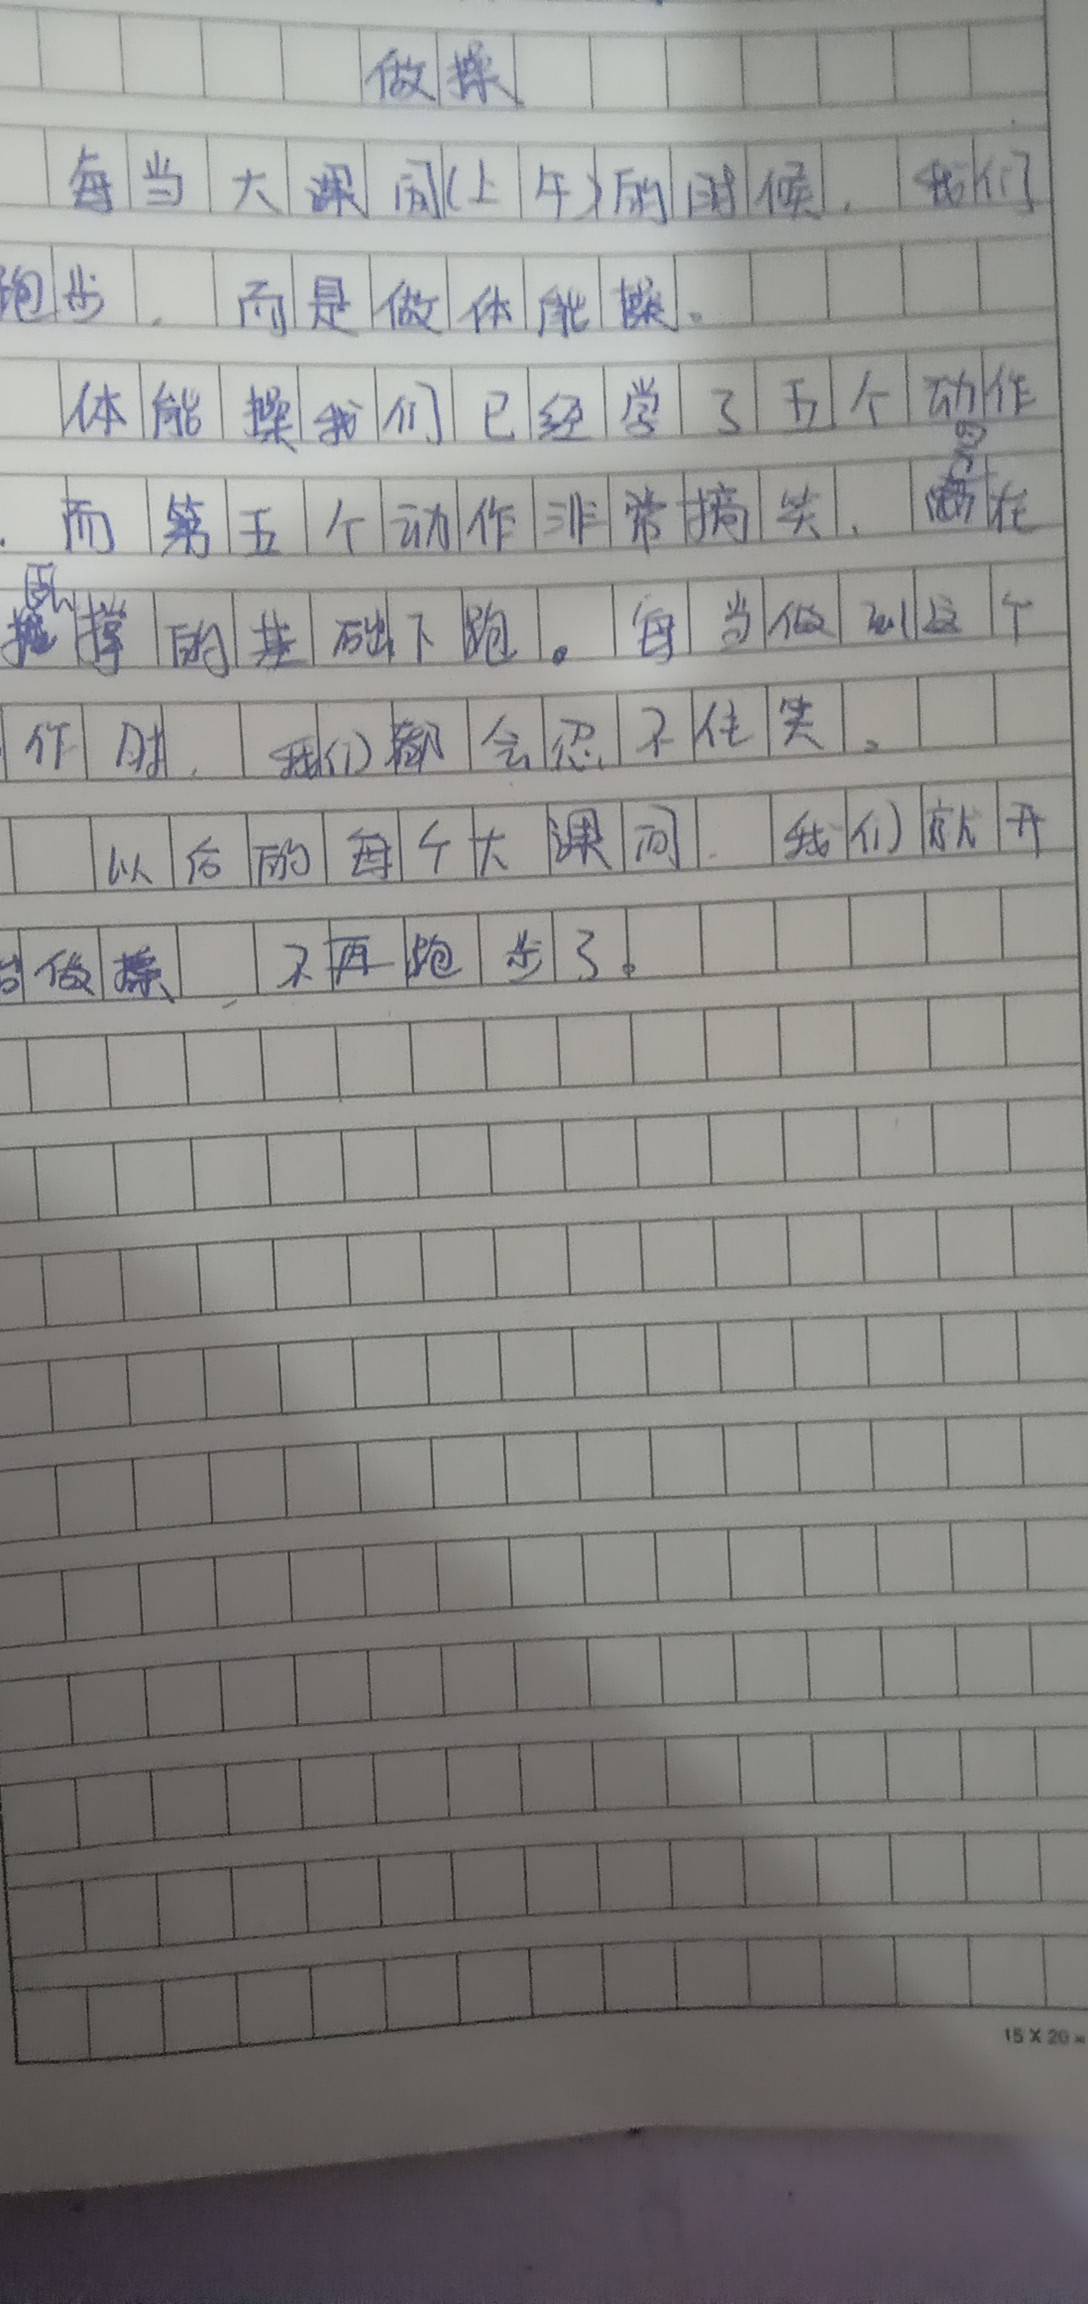 做操
每当大课间(上午)的时候，我们
跑步，而是做体能操。
体能操我们已经学了五个动作
，而第五个动作非常搞笑，是在
俯撑的基础下跑。每当做到这个
作时，我们都会忍不住笑。
以后的每个大课间，我们就开
始做操，不再跑步了。
15×20=